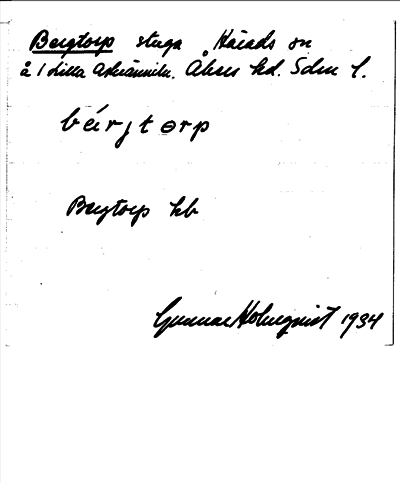 Bergtorp stuga Härads sn
å lilla Åkers hd. Sdm l.
bérjtorp
Bergtorp kb
Gunnar Holmquist 1934